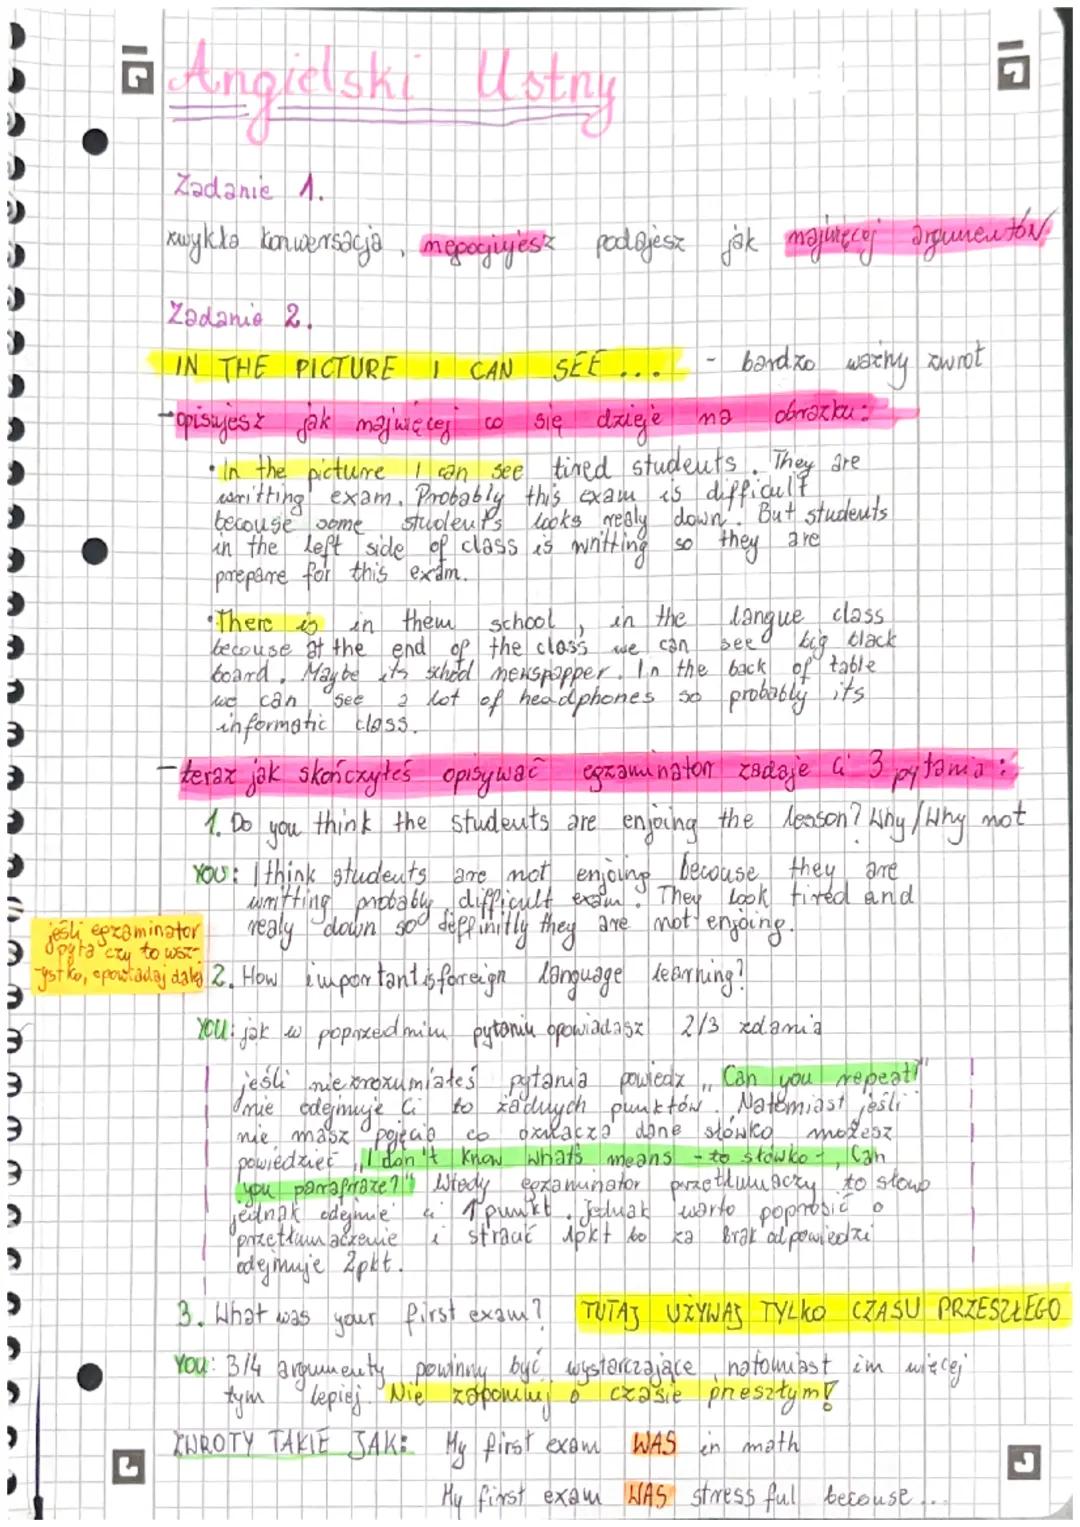 Angielski Ustny
Zadanie 1.
zwykła konwersacja, negocjujesz podajesz jak najwięcej argumentów
Zadanie 2.
IN THE PICTURE I CAN SEE... - bardzo ważny zwrot
- opisujesz jak najwięcej co się dzieje na obrazku:
• In the picture I can see tired students. They are
writting exam. Probably this exam is difficult
becouse some students looks realy down. But students
in the left side of class is writting so they are
prepare for this exam.
• There is in them school, in the langue class
becouse at the end of the class we can see big black
board. Maybe its school newspapper. In the back of table
we can see a lot of headphones so probably its
informatic class.
- teraz jak skończyłeś opisywać egzaminator zadaje Ci 3 pytania:
1. Do you think the students are enjoing the lesson? Why/Why not
YOU: I think students are not enjoing becouse they are
writting probably difficult exam. They look tired and
realy down so deffinitly they are not enjoing.
jeśli egzaminator
pyta czy to wsz-
ystko, opowiadaj dalej
2. How important is foreign language learning?
YOU: jak w poprzednim pytaniu opowiadasz 2/3 zdania
jeśli nie zrozumiałeś pytania powiedz "Can you repeat?"
nie odejmuje Ci to żadnych punktów. Natomiast jeśli
nie masz pojęcia co oznacza dane słówko możesz
powiedzieć "I don't know what's means - to słówko -, Can
you parapraze?" Wtedy egzaminator przetłumaczy to słowo
jednak odejmie ci 1 punkt. Jednak warto poprosić o
przetłumaczenie i stracić 1pkt bo za brak odpowiedzi
odejmuje 2pkt.
3. What was your first exam? TUTAJ UŻYWAJ TYLKO CZASU PRZESZŁEGO
YOU: 3/4 argumenty powinny być wystarczające, natomiast im więcej
tym lepiej. Nie zapomnij o czasie przeszłym!
ZWROTY TAKIE JAK: My first exam WAS in math
My first exam WAS stressfull becouse...